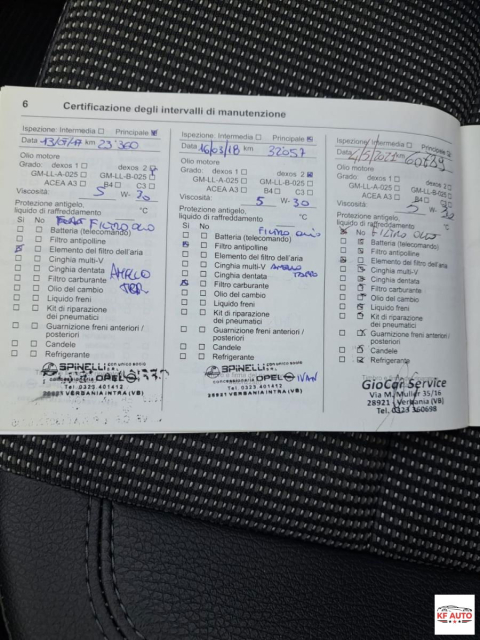 6 Certificazione degli intervalli di manutenzione
Ispezione: Intermedia Principale
Data 13/09/17 km 23'360
Olio motore
Grado: dexos 1 dexos 2
GM-LL-A-025 GM-LL-B-025
ACEA A3 B4 C3
Viscosità: 5 W- 30
Protezione antigelo,
liquido di raffreddamento °C
Si No FILTRO OLIO
Batteria (telecomando)
Filtro antipolline
Elemento del filtro dell'aria
Cinghia multi-V
Cinghia dentata ANELLO
Filtro carburante
Olio del cambio
Liquido freni
Kit di riparazione
dei pneumatici
Guarnizione freni anteriori /
posteriori
Candele
Refrigerante
SPINELLI SRL
con unico socio
concessionaria OPEL
Tel. 0323.401412
28921 VERBANIA INTRA (VB)
Ispezione: Intermedia Principale
Data 16/03/18 km 32057
Olio motore
Grado: dexos 1 dexos 2
GM-LL-A-025 GM-LL-B-025
ACEA A3 B4 C3
Viscosità: 5 W- 30
Protezione antigelo,
liquido di raffreddamento °C
Si No FILTRO OLIO
Batteria (telecomando)
Filtro antipolline
Elemento del filtro dell'aria
Cinghia multi-V ANELLO
Cinghia dentata TAPPO
Filtro carburante
Olio del cambio
Liquido freni
Kit di riparazione
dei pneumatici
Guarnizione freni anteriori /
posteriori
Candele
Refrigerante
SPINELLI SRL
con unico socio
concessionaria OPEL IVAN
Tel. 0323.401412
28921 VERBANIA INTRA (VB)
Ispezione: Intermedia Principale
Data km
Olio motore
Grado: dexos 1 dexos 2
GM-LL-A-025 GM-LL-B-025
ACEA A3 B4 C3
Viscosità: 5 W- 30
Protezione antigelo,
liquido di raffreddamento °C
Si No FILTRO OLIO
Batteria (telecomando)
Filtro antipolline
Elemento del filtro dell'aria
Cinghia multi-V
Cinghia dentata
Filtro carburante
Olio del cambio
Liquido freni
Kit di riparazione
dei pneumatici
Guarnizione freni anteriori /
posteriori
Candele
Refrigerante
GioCar Service
Via M. Muller 35/16
28921 - Verbania (VB)
Tel. 0323 360698
KF AUTO